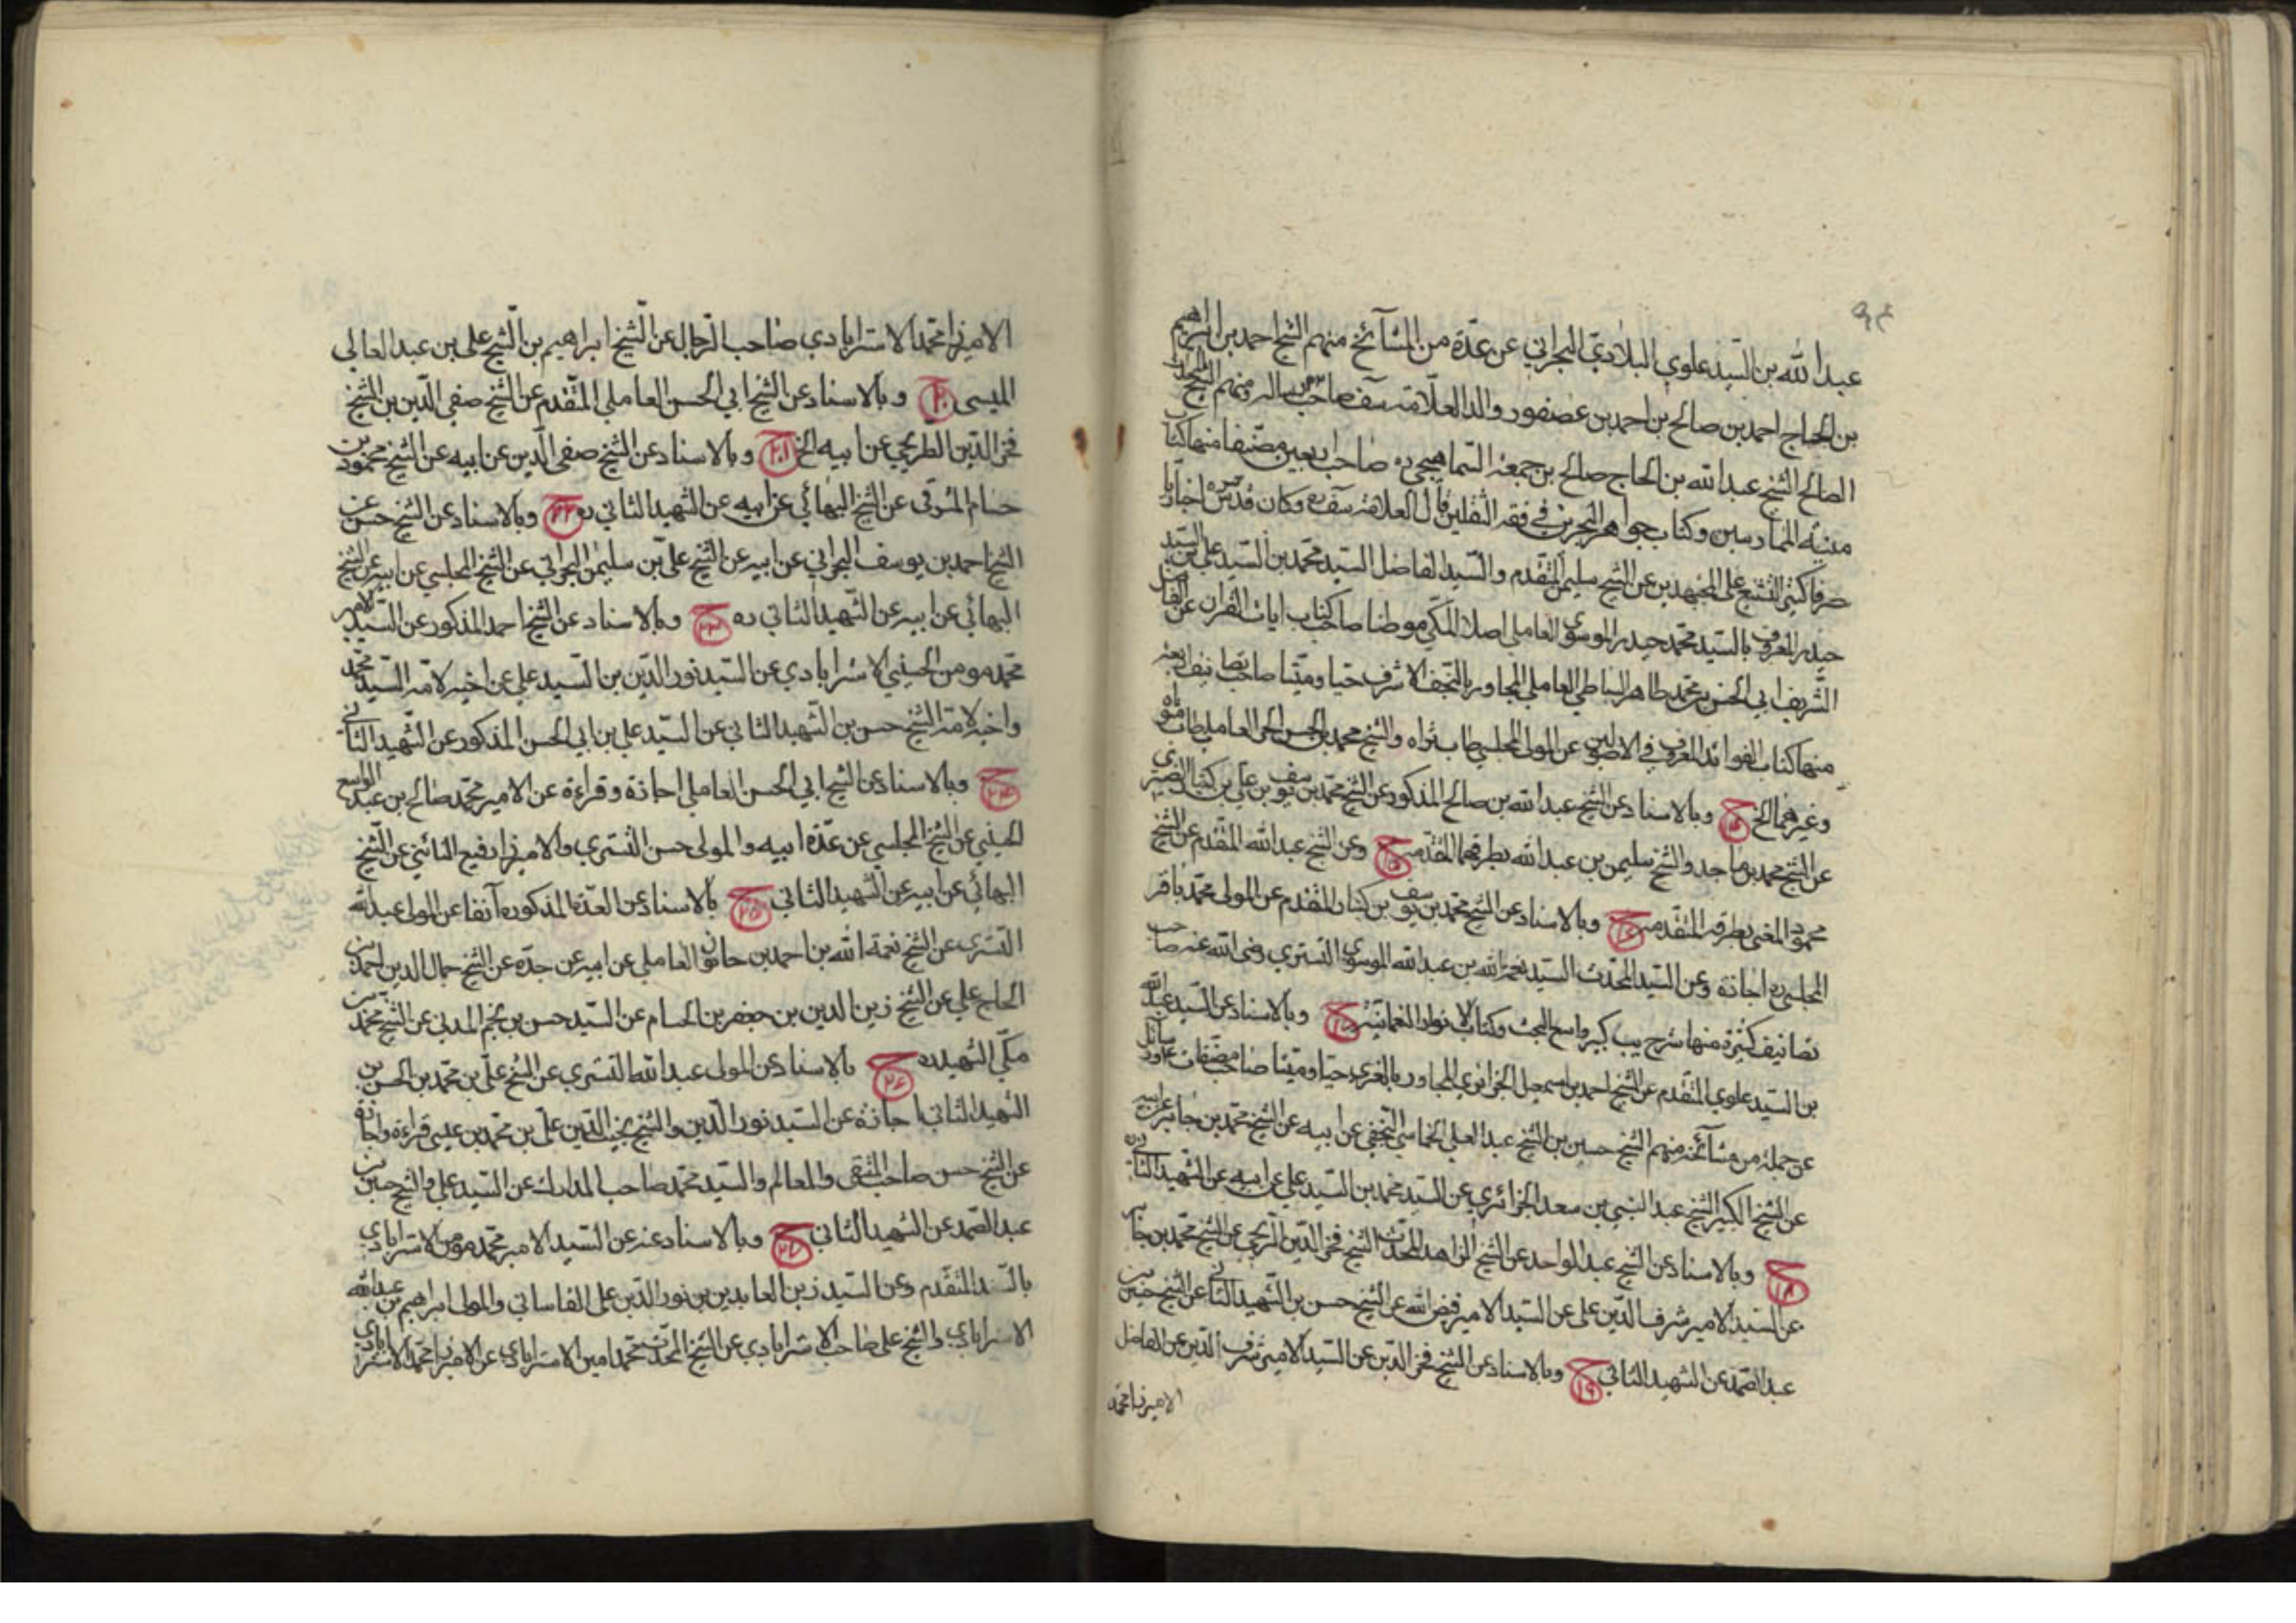 عبد الله بن السيد علوي البلادي البحراني عن عدة من المشائخ منهم الشيخ احمد بن ابراهيم
بن الحاج احمد بن صالح بن احمد بن عصفور والد العلامة يسف صاحب رساله ومنهم الشيخ المحدث
الصالح الشيخ عبد الله بن الحاج صالح بن جمعة السماهيجي ره صاحب اربعين مصنفا منها كتاب
منية الممارسين وكتاب جواهر البحرين في فقه الثقلين قال العلامة يسف ره وكان قدس سره اخباريا
صرفا كثير التشنيع على المجتهدين عن الشيخ سليمن المتقدم والسيد الفاضل السيد محمد بن السيد علي بن السيد
حيدر المعروف بالسيد محمد حيدر الموسوي العاملي اصلا المكي موطنا صاحب كتاب ايات القران عن الفاضل
الشريف ابي الحسن بن محمد طاهر النباطي العاملي المجاور بالنجف الاشرف حيا وميتا صاحب تصانيف
منها كتاب الفوائد الغروية في الاصولين عن المولى المجلسي طاب ثراه والشيخ محمد بن الحسن الحر العاملي طاب مثواه
وغيرهما الخ ح وبالاسناد عن الشيخ عبد الله بن صالح المذكور عن الشيخ محمد بن يوسف بن علي بن كنبار
عن الشيخ محمد بن ماجد والشيخ سليمن بن عبد الله بطرقهما المتقدمة ح ١٥ وعن الشيخ عبد الله المتقدم عن الشيخ
محمود المغني بطرقه المتقدمة ح ١٦ وبالاسناد عن الشيخ محمد بن يوسف بن كنبار المتقدم عن المولى محمد باقر
المجلسي ره اجازة وعن السيد المحدث السيد نعمة الله بن عبد الله الموسوي التستري رضى الله عنه صاحب
تصانيف كثيرة منها شرح يب كبير واسع البحث وكتاب الانوار النعمانية ح وبالاسناد عن السيد عبد الله
بن السيد علوي المتقدم عن الشيخ احمد بن اسمعيل الجزائري المجاور بالغري حيا وميتا صاحب مصنفات ورسائل
عن جملة من مشائخه منهم الشيخ حسين بن الشيخ عبد العلي الخمايسي النجفي عن ابيه عن الشيخ محمد بن جابر عن ابيه
عن الشيخ الكبير الشيخ عبد النبي بن سعد الجزائري عن السيد محمد بن السيد علي عن ابيه عن الشهيد الثاني ره
ح ١٨ وبالاسناد عن الشيخ عبد الواحد عن الشيخ الزاهد المحدث الشيخ فخر الدين الطريحي عن الشيخ محمد بن جابر
عن السيد الامير شرف الدين علي عن السيد الامير فيض الله عن الشيخ حسن بن الشهيد الثاني عن الشيخ حسين بن
عبد الصمد عن الشهيد الثاني ح ١٩ وبالاسناد عن الشيخ فخر الدين عن السيد الامير شرف الدين عن الفاضل
الاميرزا محمد
الاميرزا محمد الاسترابادي صاحب الرجال عن الشيخ ابراهيم بن الشيخ علي بن عبد العالي
الميسى ح ٢٠ وبالاسناد عن الشيخ ابي الحسن العاملي المتقدم عن الشيخ صفي الدين بن الشيخ
فخر الدين الطريحي عن ابيه الخ ح ٢١ وبالاسناد عن الشيخ صفي الدين عن ابيه عن الشيخ محمود بن
حسام المشرقي عن الشيخ البهائي عن ابيه عن الشهيد الثاني ره ح ٢٢ وبالاسناد عن الشيخ حسن عن
الشيخ احمد بن يوسف البحراني عن ابيه عن الشيخ علي بن سليمن البحراني عن الشيخ المجلسي عن ابيه عن الشيخ
البهائي عن ابيه عن الشهيد الثاني ره ح ٢٣ وبالاسناد عن الشيخ احمد المذكور عن السيد الامير
محمد مومن الحسيني الاسترابادي عن السيد نور الدين بن السيد علي عن اخيه لابيه السيد محمد
واخيه لامه الشيخ حسن بن الشهيد الثاني عن السيد علي بن ابي الحسن المذكور عن الشهيد الثاني
ح ٢٤ وبالاسناد عن الشيخ ابي الحسن العاملي اجازة وقراءة عن الامير محمد صالح بن عبد الواسع
الحسيني عن الشيخ المجلسي عن عدة ابيه والمولى حسن التستري والاميرزا رفيع النائني عن الشيخ
البهائي عن ابيه عن الشهيد الثاني ح ٢٥ بالاسناد عن العدة المذكورة آنفا عن المولى عبد الله
التستري عن الشيخ نعمة الله بن احمد بن خاتون العاملي عن ابيه عن جده عن الشيخ جمال الدين احمد بن
الحاج علي عن الشيخ زين الدين بن جعفر بن الحسام عن السيد حسن بن نجم المدني عن الشيخ محمد بن
مكي الشهيد ره ح ٢٦ بالاسناد عن المولى عبد الله التستري عن الشيخ علي بن محمد بن الحسن بن
الشهيد الثاني اجازة عن السيد نور الدين والشيخ نجيب الدين علي بن محمد بن عيسى قراءة واجازة
عن الشيخ حسن صاحب المنتقى والمعالم والسيد محمد صاحب المدارك عن السيد علي والشيخ حسين بن
عبد الصمد عن الشهيد الثاني ح ٢٧ وبالاسناد عنه عن السيد الامير محمد مومن الاسترابادي
بالسند المتقدم وعن السيد زين العابدين بن نور الدين علي القاساني والمولى ابراهيم بن عبد الله
الاسترابادي والشيخ علي صاحب الاسترابادي عن الشيخ المحدث محمد امين الاسترابادي عن الاميرزا محمد الاسترابادي